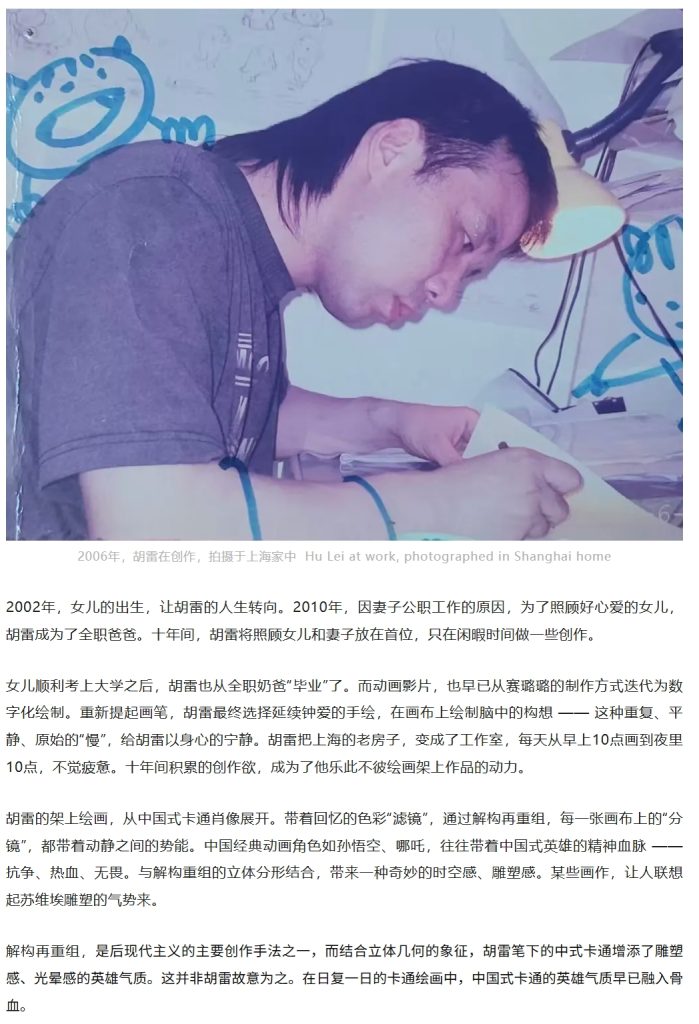 2006年，胡雷在创作，拍摄于上海家中 Hu Lei at work, photographed in Shanghai home
2002年，女儿的出生，让胡雷的人生转向。2010年，因妻子公职工作的原因，为了照顾好心爱的女儿，
胡雷成为了全职爸爸。十年间，胡雷将照顾女儿和妻子放在首位，只在闲暇时间做一些创作。
女儿顺利考上大学之后，胡雷也从全职奶爸“毕业”了。而动画影片，也早已从赛璐璐的制作方式迭代为数
字化绘制。重新提起画笔，胡雷最终选择延续钟爱的手绘，在画布上绘制脑中的构想 —— 这种重复、平
静、原始的“慢”，给胡雷以身心的宁静。胡雷把上海的老房子，变成了工作室，每天从早上10点画到夜里
10点，不觉疲惫。十年间积累的创作欲，成为了他乐此不彼绘画架上作品的动力。
胡雷的架上绘画，从中国式卡通肖像展开。带着回忆的色彩“滤镜”，通过解构再重组，每一张画布上的“分
镜”，都带着动静之间的势能。中国经典动画角色如孙悟空、哪吒，往往带着中国式英雄的精神血脉 ——
抗争、热血、无畏。与解构重组的立体分形结合，带来一种奇妙的时空感、雕塑感。某些画作，让人联想
起苏维埃雕塑的气势来。
解构再重组，是后现代主义的主要创作手法之一，而结合立体几何的象征，胡雷笔下的中式卡通增添了雕塑
感、光晕感的英雄气质。这并非胡雷故意为之。在日复一日的卡通绘画中，中国式卡通的英雄气质早已融入骨
血。